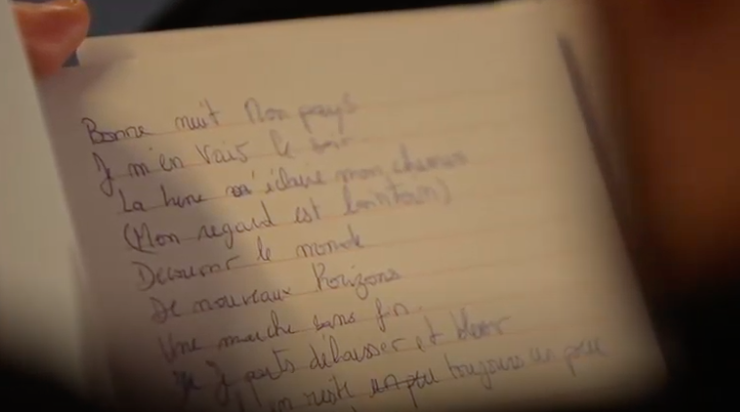 Bonne nuit Mon pays
Je m'en vais le soir
La lune m'éclaire mon chemin
(Mon regard est lointain)
Découvrir le monde
De nouveaux horizons
Une marche sans fin
Je parts délaisser et
en reste un peu toujours un peu